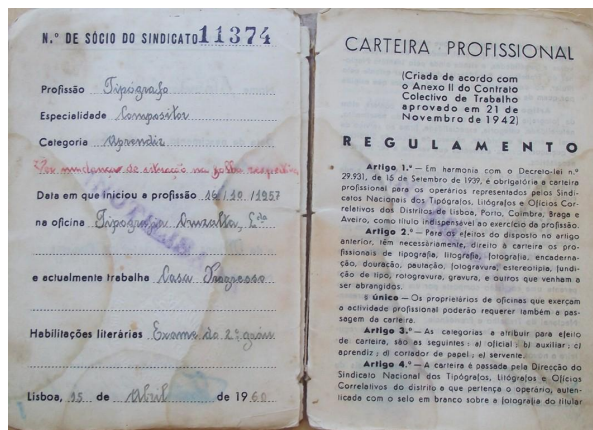 N.º DE SÓCIO DO SINDICATO 11374
Profissão Tipógrafo
Especialidade Compositor
Categoria Aprendiz
Data em que iniciou a profissão 16/10/1957
na oficina Tipografia L.da
e actualmente trabalha Casa Progresso
Habilitações literárias Exame do 2.º gráu
Lisboa, 15 de Abril de 1960
CARTEIRA PROFISSIONAL
(Criada de acordo com
o Anexo II do Contrato
Colectivo de Trabalho
aprovado em 21 de
Novembro de 1942)
REGULAMENTO
Artigo 1.º — Em harmonia com o Decreto-lei n.º
29.931, de 15 de Setembro de 1939, é obrigatória a carteira
profissional para os operários representados pelos Sindi-
catos Nacionais dos Tipógrafos, Litógrafos e Ofícios Cor-
relativos dos Distritos de Lisboa, Porto, Coimbra, Braga e
Aveiro, como título indispensável ao exercício da profissão.
Artigo 2.º — Para os efeitos do disposto no artigo
anterior, têm necessàriamente, direito à carteira os pro-
fissionais de tipografia, litografia, fotografia, encaderna-
ção, douração, pautação, fotogravura, estereotipia, fundi-
ção de tipo, rotogravura, gravura, e outros que venham a
ser abrangidos.
§ único — Os proprietários de oficinas que exerçam
a actividade profissional poderão requerer também a pas-
sagem da carteira.
Artigo 3.º — As categorias a atribuir para efeito
de carteira, são as seguintes: a) oficial; b) auxiliar; c)
aprendiz; d) cortador de papel; e) servente.
Artigo 4.º — A carteira é passada pela Direcção do
Sindicato Nacional dos Tipógrafos, Litógrafos e Ofícios
Correlativos do distrito a que pertença o operário, auten-
ticada com o selo em branco sobre a fotografia do titular